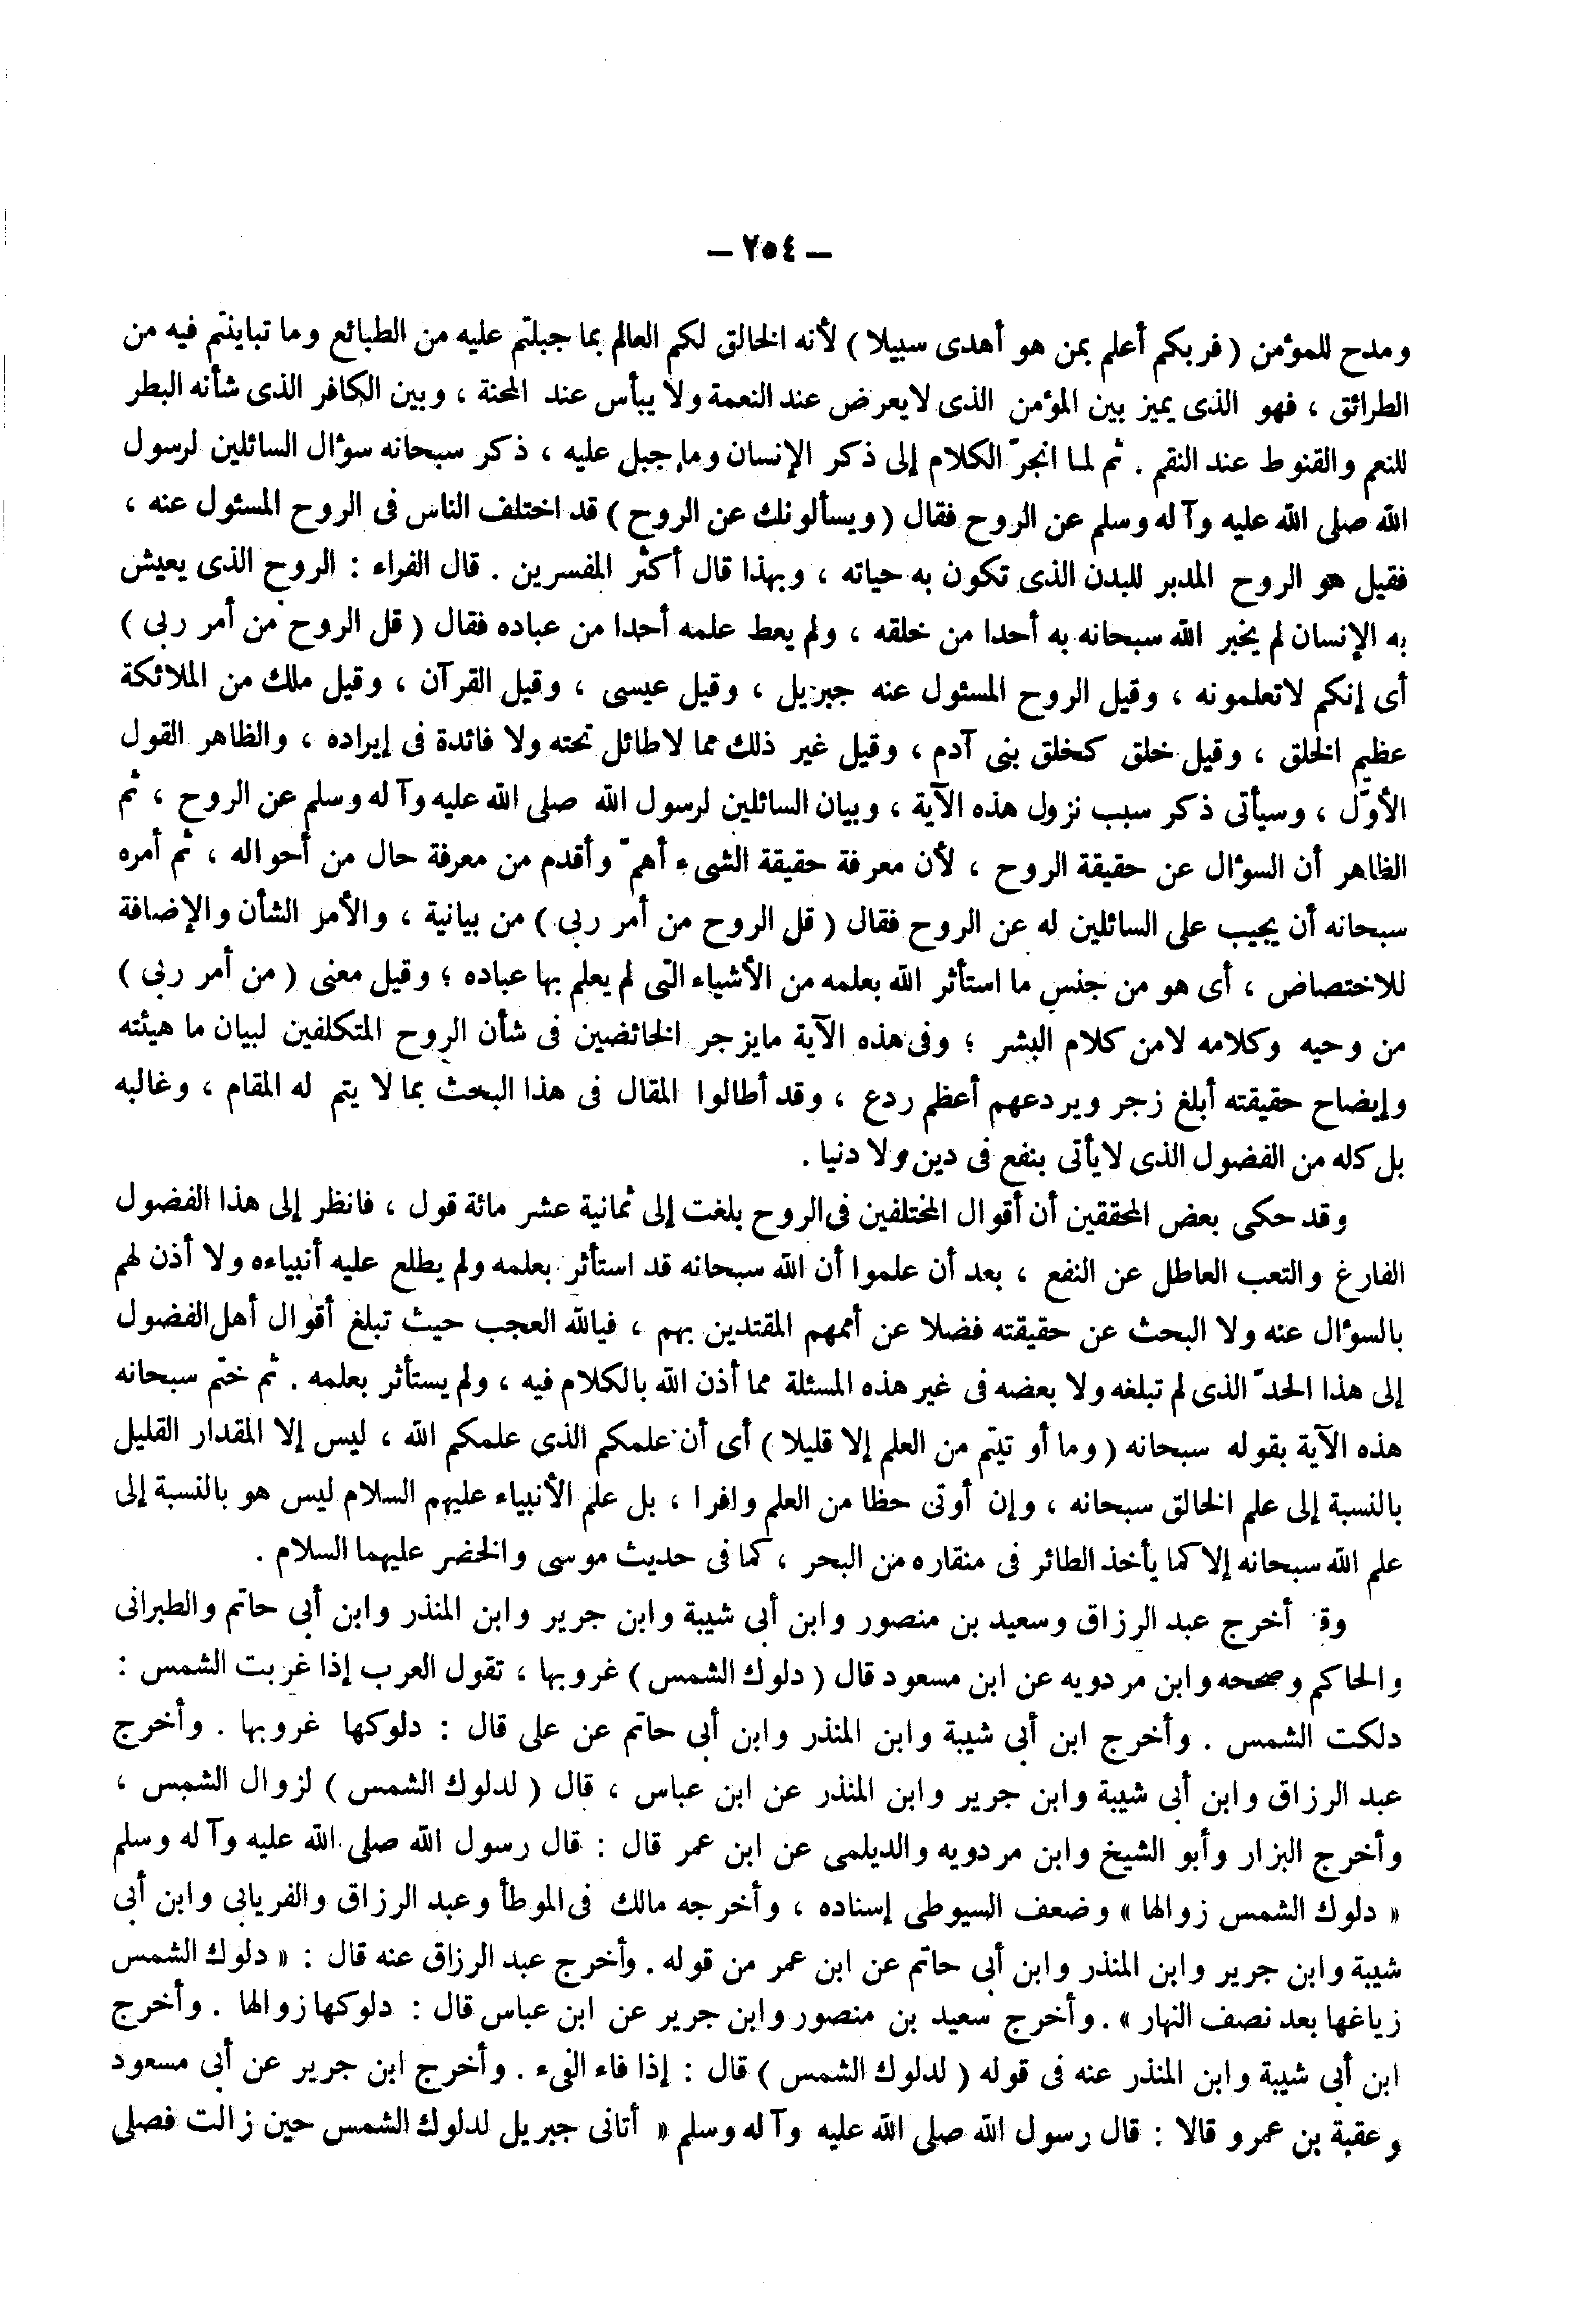 — ٢٥٤ —
ومدح للمؤمن ( فربكم أعلم بمن هو أهدى سبيلا ) لأنه الخالق لكم العالم بما جبلتم عليه من الطبائع وما تباينتم فيه من
الطرائق ، فهو الذى يميز بين المؤمن الذى لايعرض عند النعمة ولا ييأس عند المحنة ، وبين الكافر الذى شأنه البطر
للنعم والقنوط عند النقم . ثم لما انجرّ الكلام إلى ذكر الإنسان وما جبل عليه ، ذكر سبحانه سؤال السائلين لرسول
الله صلى الله عليه وآله وسلم عن الروح فقال ( ويسألونك عن الروح ) قد اختلف الناس فى الروح المسئول عنه ،
فقيل هو الروح المدبر للبدن الذى تكون به حياته ، وبهذا قال أكثر المفسرين . قال الفراء : الروح الذى يعيش
به الإنسان لم يخبر الله سبحانه به أحدا من خلقه ، ولم يعط علمه أحدا من عباده فقال ( قل الروح من أمر ربى )
أى إنكم لاتعلمونه ، وقيل الروح المسئول عنه جبريل ، وقيل عيسى ، وقيل القرآن ، وقيل ملك من الملائكة
عظيم الخلق ، وقيل خلق كخلق بنى آدم ، وقيل غير ذلك مما لاطائل تحته ولا فائدة فى إيراده ، والظاهر القول
الأوّل ، وسيأتى ذكر سبب نزول هذه الآية ، وبيان السائلين لرسول الله صلى الله عليه وآله وسلم عن الروح ، ثم
الظاهر أن السؤال عن حقيقة الروح ، لأن معرفة حقيقة الشىء أهمّ وأقدم من معرفة حال من أحواله ، ثم أمره
سبحانه أن يجيب على السائلين له عن الروح فقال ( قل الروح من أمر ربى ) من بيانية ، والأمر الشأن والإضافة
للاختصاص ، أى هو من جنس ما استأثر الله بعلمه من الأشياء التى لم يعلم بها عباده ؛ وقيل معنى ( من أمر ربى )
من وحيه وكلامه لامن كلام البشر ؛ وفى هذه الآية مايزجر الخائضين فى شأن الروح المتكلفين لبيان ما هيئته
وإيضاح حقيقته أبلغ زجر ويردعهم أعظم ردع ، وقد أطالوا المقال فى هذا البحث بما لا يتم له المقام ، وغالبه
بل كله من الفضول الذى لايأتى بنفع فى دين ولا دنيا .
وقد حكى بعض المحققين أن أقوال المختلفين فى الروح بلغت إلى ثمانية عشر مائة قول ، فانظر إلى هذا الفضول
الفارغ والتعب العاطل عن النفع ، بعد أن علموا أن الله سبحانه قد استأثر بعلمه ولم يطلع عليه أنبياءه ولا أذن لهم
بالسؤال عنه ولا البحث عن حقيقته فضلا عن أممهم المقتدين بهم ، فيالله العجب حيث تبلغ أقوال أهل الفضول
إلى هذا الحدّ الذى لم تبلغه ولا بعضه فى غير هذه المسئلة مما أذن الله بالكلام فيه ، ولم يستأثر بعلمه . ثم ختم سبحانه
هذه الآية بقوله سبحانه ( وما أوتيتم من العلم إلا قليلا ) أى أن علمكم الذى علمكم الله ، ليس إلا المقدار القليل
بالنسبة إلى علم الخالق سبحانه ، وإن أوتى حظا من العلم وافرا ، بل علم الأنبياء عليهم السلام ليس هو بالنسبة إلى
علم الله سبحانه إلا كما يأخذ الطائر فى منقاره من البحر ، كما فى حديث موسى والخضر عليهما السلام .
وقد أخرج عبد الرزاق وسعيد بن منصور وابن أبى شيبة وابن جرير وابن المنذر وابن أبى حاتم والطبرانى
والحاكم وصححه وابن مردويه عن ابن مسعود قال ( دلوك الشمس ) غروبها ، تقول العرب إذا غربت الشمس :
دلكت الشمس . وأخرج ابن أبى شيبة وابن المنذر وابن أبى حاتم عن على قال : دلوكها غروبها . وأخرج
عبد الرزاق وابن أبى شيبة وابن جرير وابن المنذر عن ابن عباس ، قال ( لدلوك الشمس ) لزوال الشمس ،
وأخرج البزار وأبو الشيخ وابن مردويه والديلمى عن ابن عمر قال : قال رسول الله صلى الله عليه وآله وسلم
« دلوك الشمس زوالها » وضعف السيوطى إسناده ، وأخرجه مالك فى الموطأ وعبد الرزاق والفريابى وابن أبى
شيبة وابن جرير وابن المنذر وابن أبى حاتم عن ابن عمر من قوله . وأخرج عبد الرزاق عنه قال : « دلوك الشمس
زياغها بعد نصف النهار » . وأخرج سعيد بن منصور وابن جرير عن ابن عباس قال : دلوكها زوالها . وأخرج
ابن أبى شيبة وابن المنذر عنه فى قوله ( لدلوك الشمس ) قال : إذا فاء الفىء . وأخرج ابن جرير عن أبى مسعود
وعقبة بن عمرو قالا : قال رسول الله صلى الله عليه وآله وسلم « أتانى جبريل لدلوك الشمس حين زالت فصلى